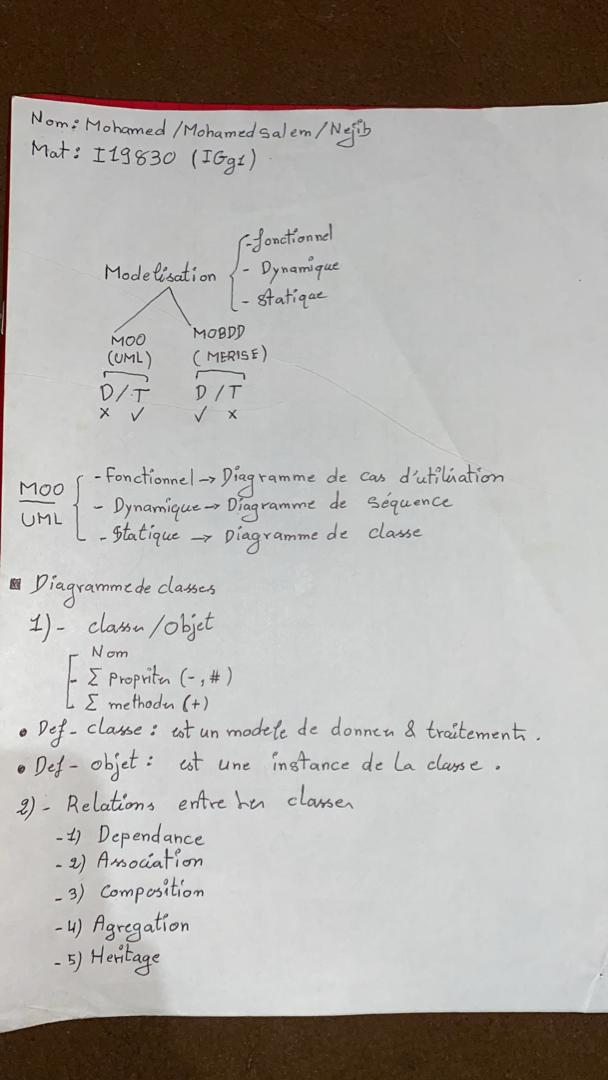 Nom: Mohamed /Mohamedsalem/Nejib
Mat: I19830 (IGg1)
- fonctionnel
Modelisation - Dynamique
- statique
MOO MOBDD
(UML) (MERISE)
D/T D/T
x ✓ ✓ x
- Fonctionnel → Diagramme de cas d'utilisation
MOO - Dynamique → Diagramme de séquence
UML - statique → Diagramme de classe
Diagramme de classes
1)- classe/objet
Nom
- Σ propriétes (-, #)
Σ methodes (+)
• Def- classe : est un modele de donnes & traitement.
• Def- objet : est une instance de la classe.
2)- Relations entre les classes
-1) Dependance
-2) Association
-3) Composition
-4) Agregation
-5) Heritage